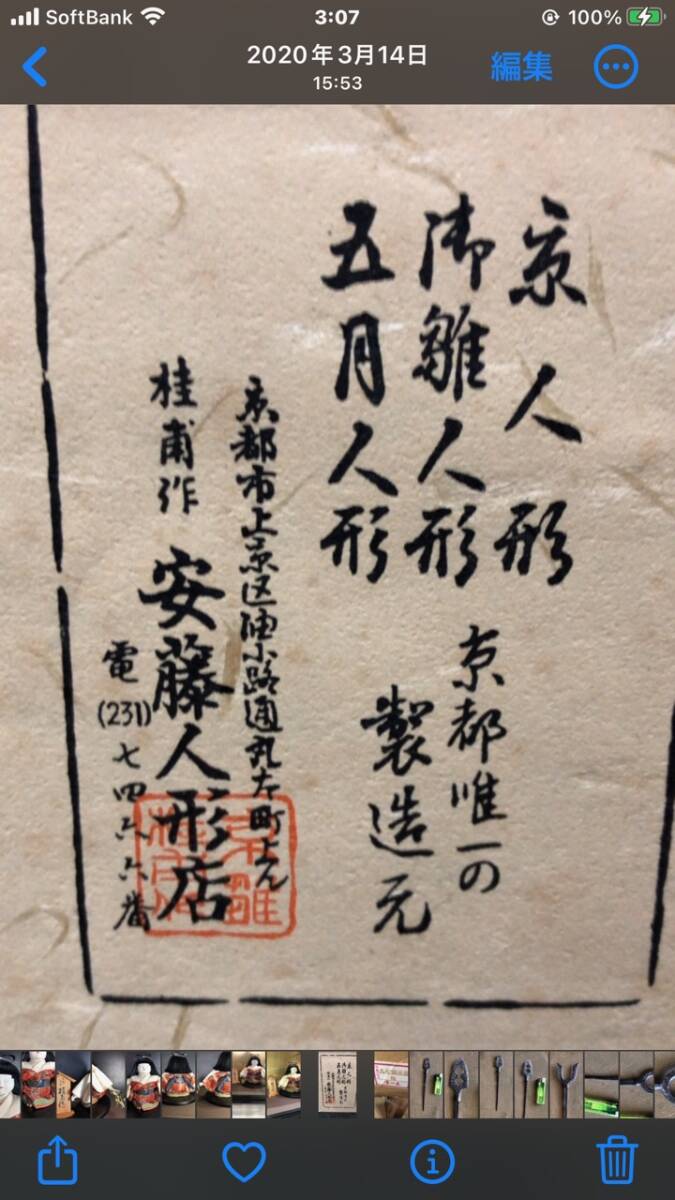 SoftBank 3:07 100%
2020年3月14日 編集
15:53
京人形
御雛人形
五月人形
京都唯一の
製造元
京都市上京区油小路通丸太町上ル
桂甫作 安藤人形店
電(231)七四六六番